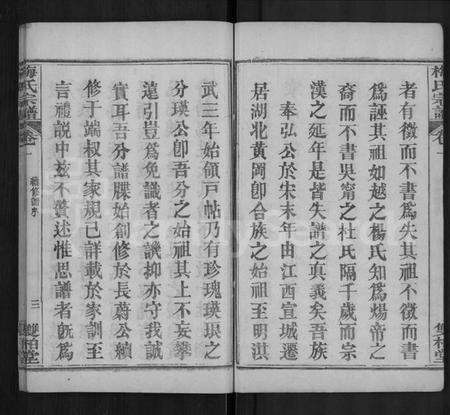 梅氏宗譜
卷一
雙柏堂
者有徵而不書爲失其祖不徵而書
爲誣其祖如越之楊氏知爲煬帝之
裔而不書吳甯之杜氏隔千歲而宗
漢之延年是皆失譜之真義矣吾族
奉弘公於宋末年由江西宣城遷
居湖北黃岡即合族之始祖至明淇
武三年始領戶帖乃有珍瑰瑛琅之
分瑛公卽吾分之始祖其上不妄攀
遠引豈爲免識者之譏抑亦守我誠
實耳吾分譜牒始創修於長蔚公續
修于端叔其家規已詳載於家訓至
言禮説中玆不贅述惟思譜者旣爲
梅氏宗譜
卷一
續修譜序
三
雙柏堂